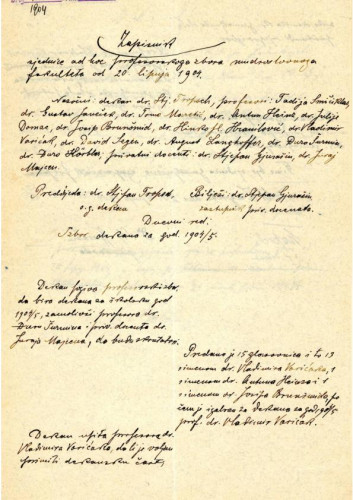 1904
Zapisnik
sjednice ad hoc profesorskoga zbora mudroslovnoga
fakulteta od 20 lipnja 1904.
Nazočni: dekan dr. Stj. Tropsch, profesori: Tadija Smičiklas,
dr. Gustav Janeček, dr. Tomo Maretić, dr. Antun Heinz, dr. Julije
Domac, dr. Josip Brunšmid, dr. Hinko pl. Hranilović, dr. Vladimir
Varićak, dr. David Segen, dr. August Langhoffer, dr. Đuro Šurmin,
dr. Đuro Körbler, privatni docenti: dr. Stjepan Gjurašin, dr. Juraj
Majcen.
Predsjeda: dr. Stjepan Tropsch
o. g. dekan
Bilježi: dr. Stjepan Gjurašin
zastupnik priv. docenata.
Dnevni red.
Izbor dekana za god. 1904/5.
Dekan poziva profesorski zbor,
da bira dekana za školsku god
1904/5, zamolivši profesora dr.
Đuru Šurmina i priv. docenta dr.
Juraja Majcena, da budu skrutatori.
Predano je 15 glasovnica i to 13
s imenom dr. Vladimira Varićaka, 1
s imenom dr. Antuna Heinza i 1
s imenom dr. Josipa Brunšmida, po
čem je izabran za dekana za god. 1904/5
prof. dr. Vladimir Varićak.
Dekan upita profesora dr.
Vladimira Varićaka, da li je voljan
primiti dekansku čast,